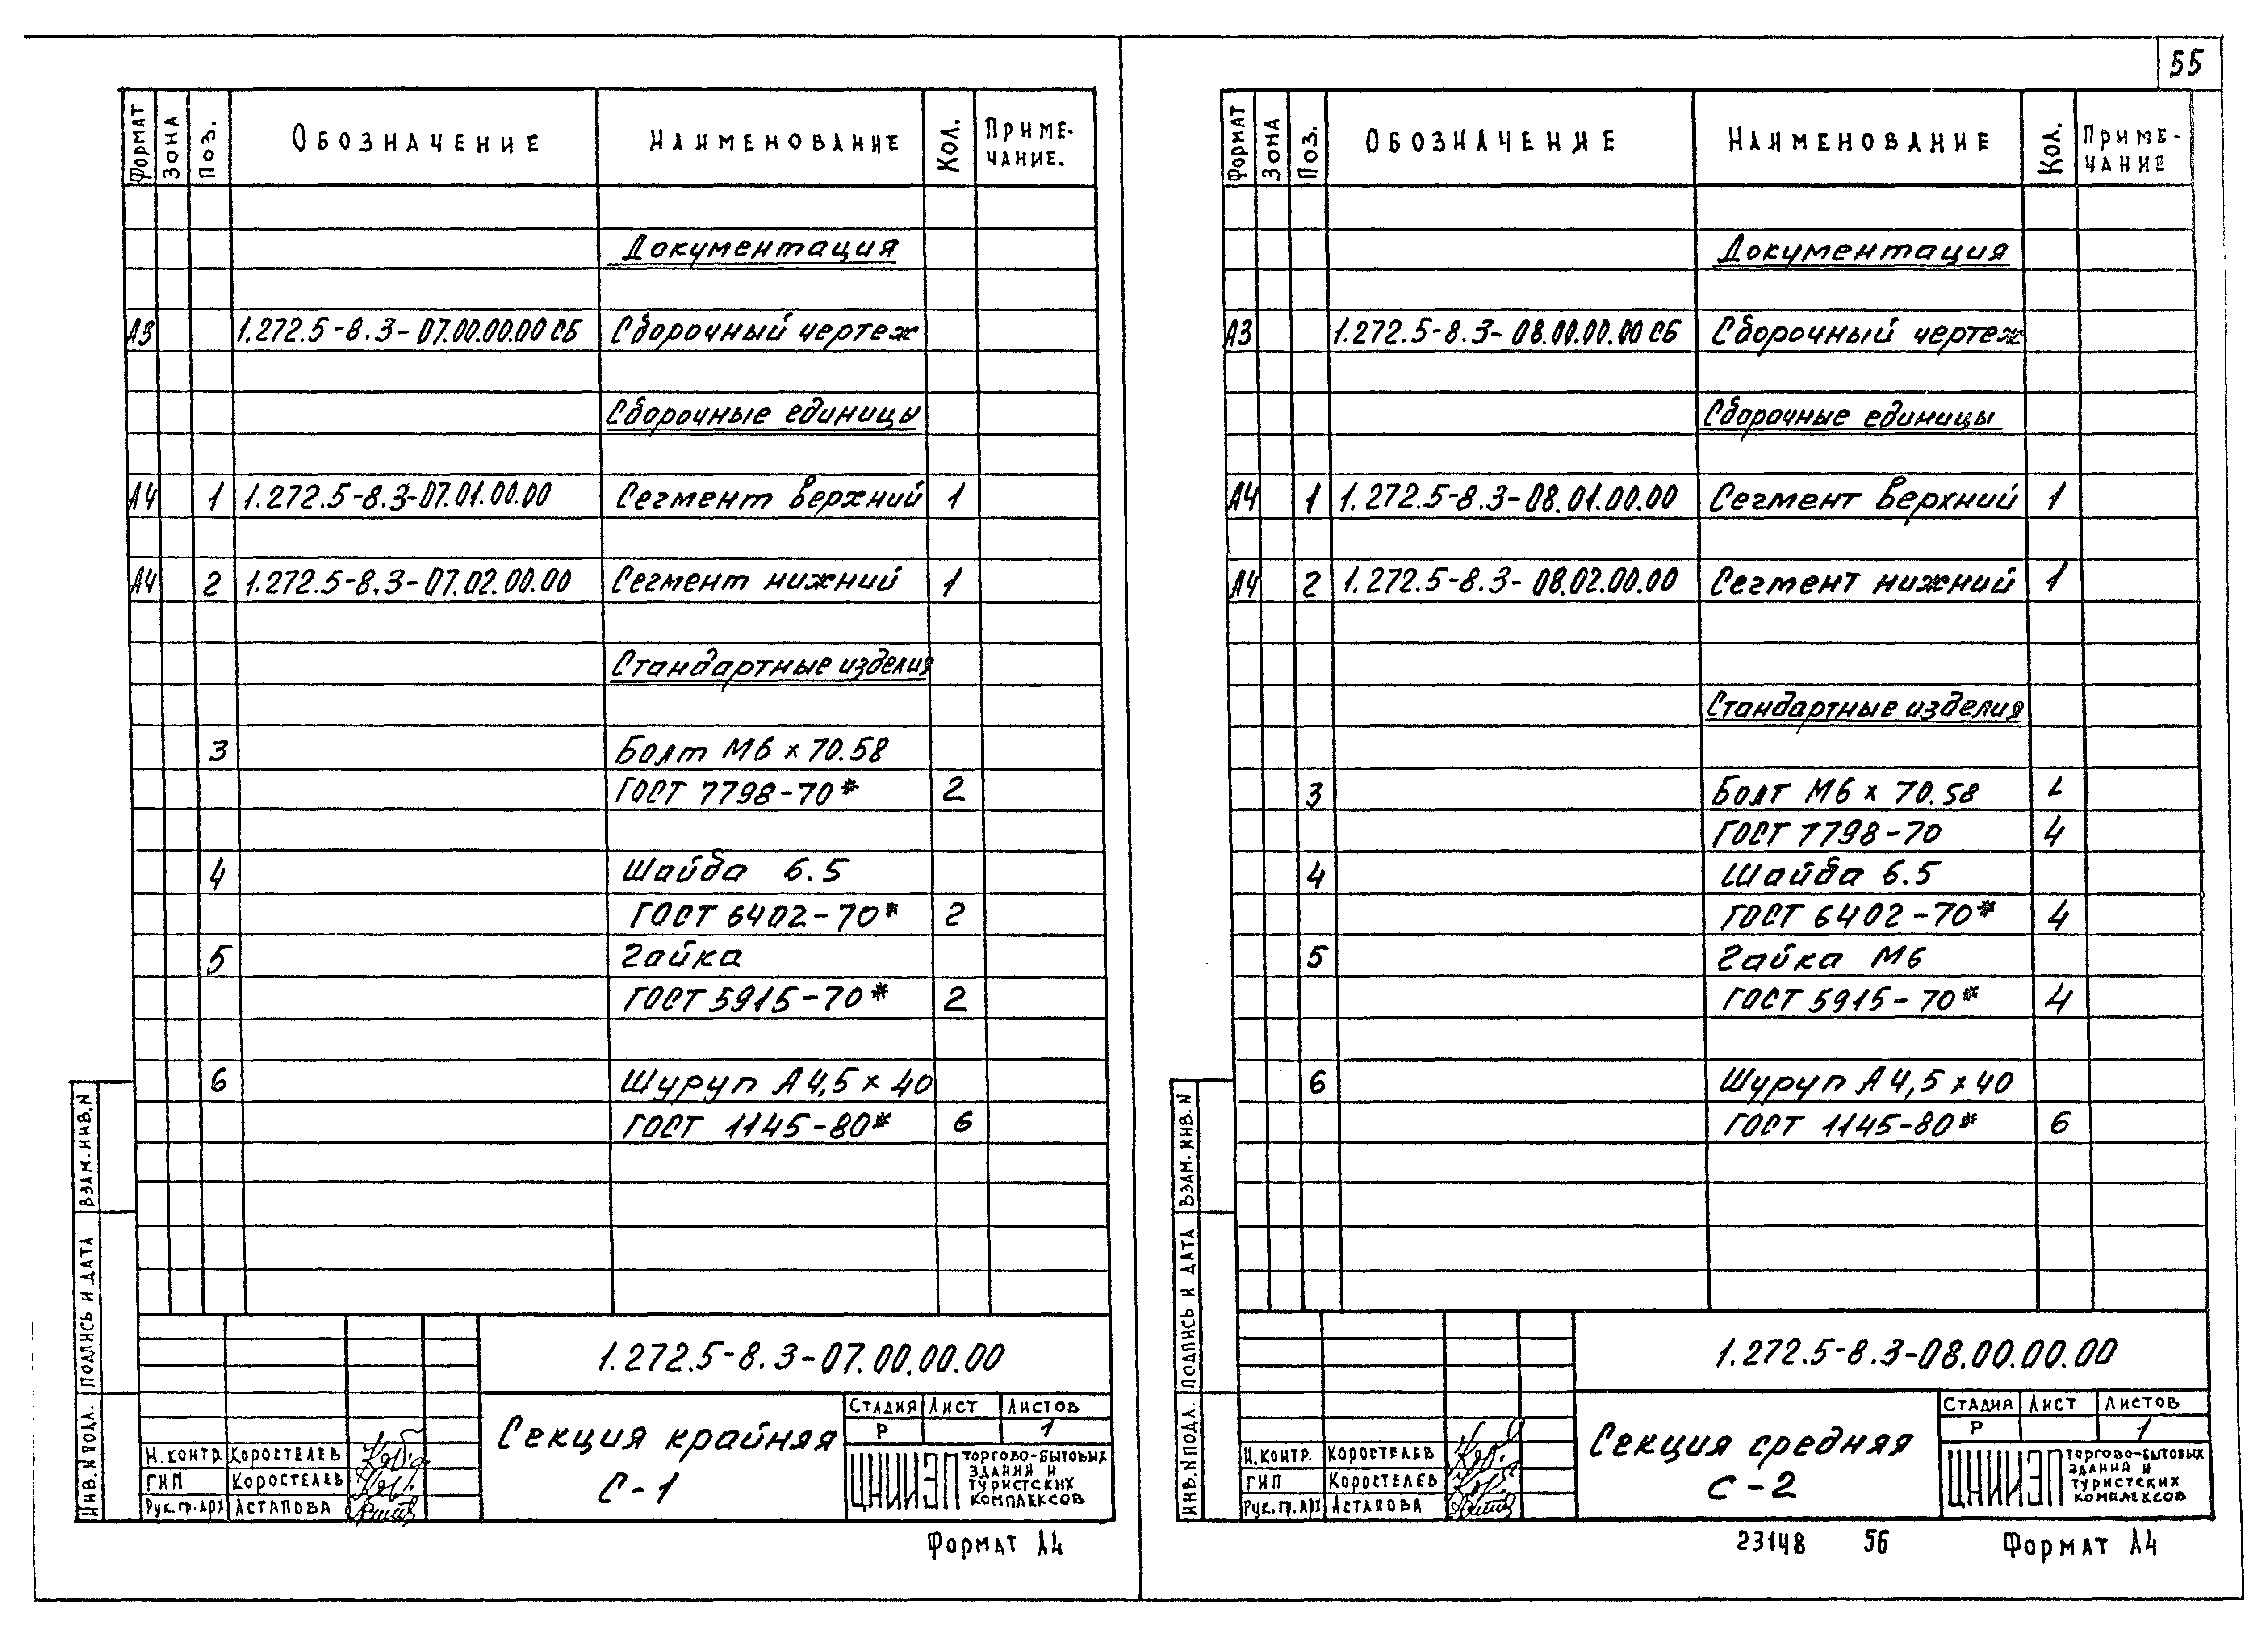 55
Формат Зона Поз. Обозначение Наименование Кол. Приме-
чание.
Документация
А3 1.272.5-8.3-07.00.00.00 СБ Сборочный чертеж
Сборочные единицы
А4 1 1.272.5-8.3-07.01.00.00 Сегмент верхний 1
А4 2 1.272.5-8.3-07.02.00.00 Сегмент нижний 1
Стандартные изделия
3 Болт М6 х 70.58
ГОСТ 7798-70* 2
4 Шайба 6.5
ГОСТ 6402-70* 2
5 Гайка
ГОСТ 5915-70* 2
6 Шуруп А4,5 х 40
ГОСТ 1145-80* 6
Взам. инв. N
Подпись и дата
Инв. N подл.
1.272.5-8.3-07.00.00.00
Секция крайняя
С-1
Стадия Лист Листов
Р 1
Н. контр. Коростелев
ГИП Коростелев
Рук. гр. арх Астапова
ЦНИИЭП торгово-бытовых
зданий и
туристских
комплексов
Формат А4
Формат Зона Поз. Обозначение Наименование Кол. Приме-
чание
Документация
А3 1.272.5-8.3-08.00.00.00 СБ Сборочный чертеж
Сборочные единицы
А4 1 1.272.5-8.3-08.01.00.00 Сегмент верхний 1
А4 2 1.272.5-8.3-08.02.00.00 Сегмент нижний 1
Стандартные изделия
3 Болт М6 х 70.58
ГОСТ 7798-70 4
4 Шайба 6.5
ГОСТ 6402-70* 4
5 Гайка М6
ГОСТ 5915-70* 4
6 Шуруп А4,5 х 40
ГОСТ 1145-80* 6
Взам. инв. N
Подпись и дата
Инв. N подл.
1.272.5-8.3-08.00.00.00
Секция средняя
С-2
Стадия Лист Листов
Р 1
Н. контр. Коростелев
ГИП Коростелев
Рук. гр. арх Астапова
ЦНИИЭП торгово-бытовых
зданий и
туристских
комплексов
23148 56 Формат А4